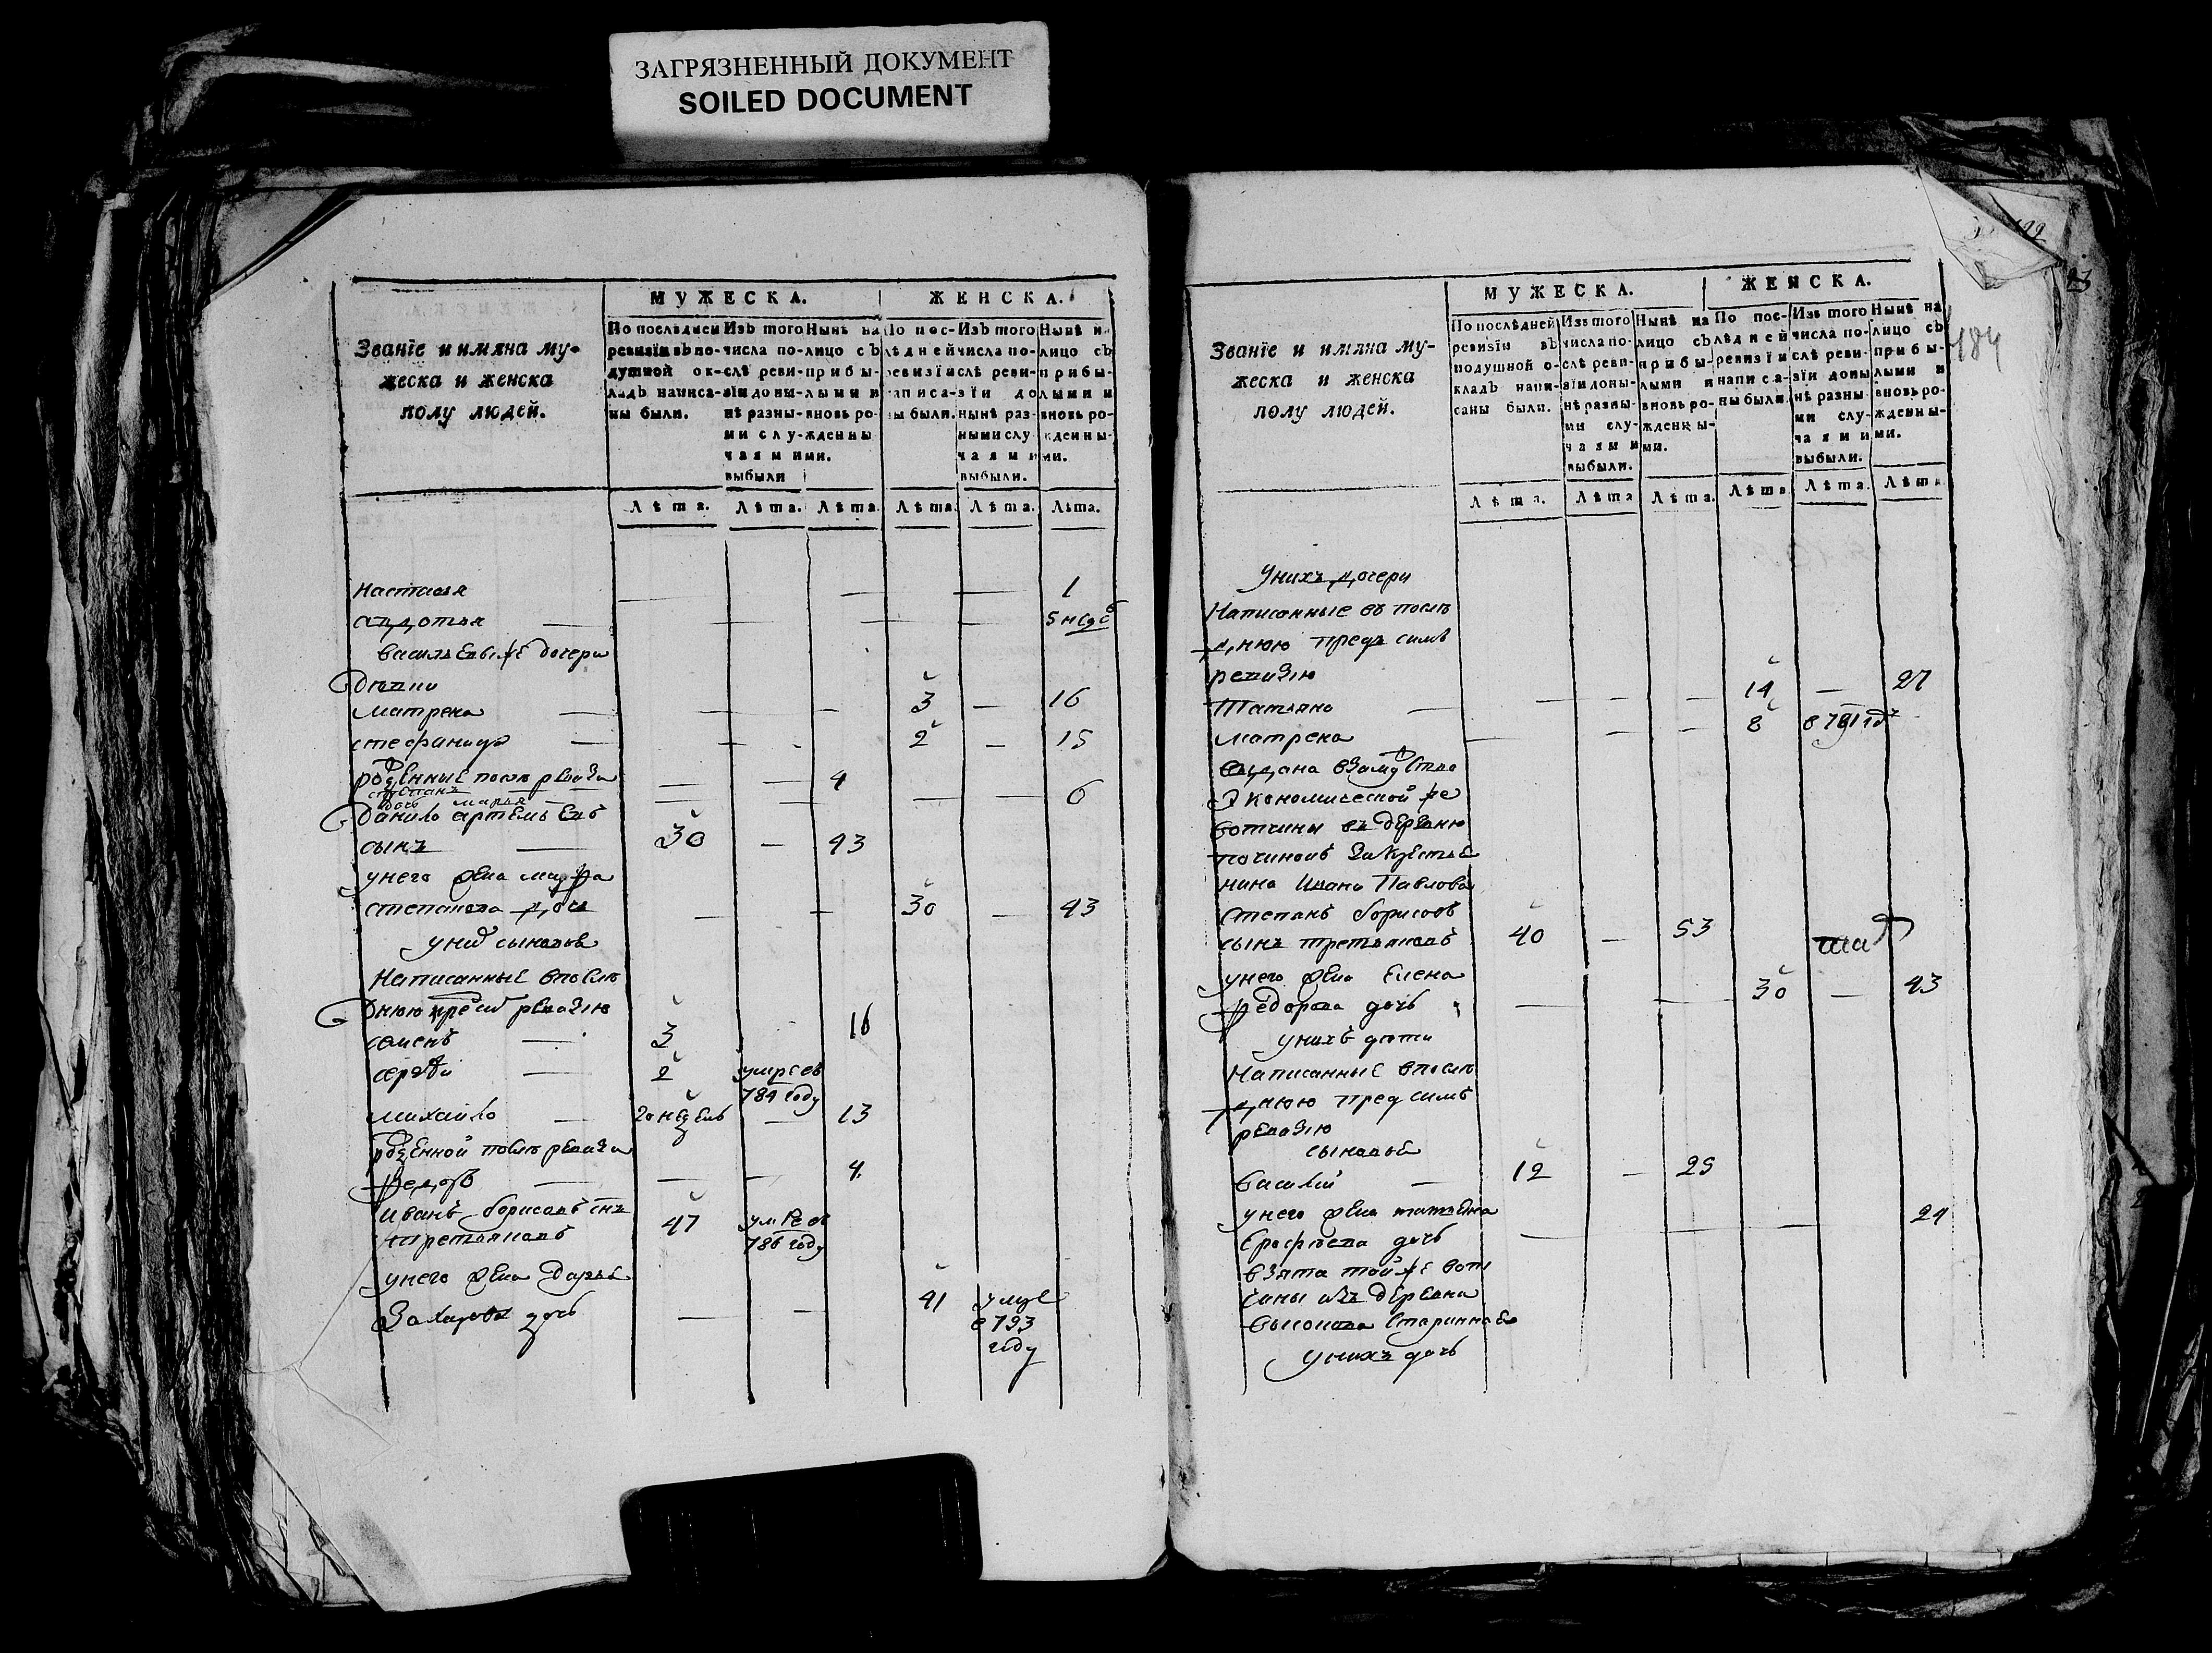 ЗАГРЯЗНЕННЫЙ ДОКУМЕНТ
SOILED DOCUMENT
Званїе и имяна му-
жеска и женска
полу людей.
МУЖЕСКА.
ЖЕНСКА.
По послѣдней ревизїи въ подушной окладъ написаны были.
Изъ того числа послѣ ревизїи доны нѣ разными случаями выбыли
Нынѣ на лицо съ прибылыми и вновь рожденными.
По послѣдней ревизїи написаны были.
Изъ того числа послѣ ревизїи до нынѣ разными случаями выбыли.
Нынѣ на лицо съ прибылыми и вновь рожденными.
Лѣта. Лѣта. Лѣта. Лѣта. Лѣта. Лѣта.
настасья — — — 1
авдотья — — — — 5 нед
васильевы же дочери
дѣвки
матрена — — — 3 — 16
стефанида — — 2 — 15
рожденные после ревизи
степанъ — — 4
дочь марья — — — — 6
данило артемьевъ
сынъ — 30 — 43
унего жена марфа
степанова дочь — — 30 — 43
унихъ сыновья
Написанные впослѣ
днюю пред сим ревизию
семенъ — 3 16
сергѣи — 2 умре въ
784 году
михаило — 20 недель — 13
рожденной послѣ ревизи
федоръ — — — 4
иванъ борисовъ снъ
третьяковъ 47 умре въ
786 году
унего жена дарья
Захарова дочь — — 41 умре
в 793
году
484
Званїе и имяна му-
жеска и женска
полу людей.
МУЖЕСКА.
ЖЕНСКА.
По послѣдней ревизїи въ подушной окладъ написаны были.
Изъ того числа послѣ ревизїи доны нѣ разными случаями выбыли.
Нынѣ на лицо съ прибылыми и вновь рожденными.
По послѣдней ревизїи написаны были.
Изъ того числа послѣ ревизїи доны нѣ разными случаями выбыли.
Нынѣ на лицо съ прибылыми и вновь рожденными.
Лѣта. Лѣта Лѣта. Лѣта Лѣта. Лѣта
Унихъ дочери
Написанные въ послѣ
днюю предъ симъ
ревизию
Татьяна — — — — 14 — 27
матрена — — — 8 в 791 годъ
выдана взамужство
Экономической же
вотчины въ деревню
починокъ за крестья
нина Ивана Павлова
степанъ борисовъ
сынъ третьяковъ 40 — 53
унего жена елена
федорова дочь — — 30 — 43
унихъ дѣти
Написанные впослѣ
днюю пред симъ
ревизию
сыновья
василий — 12 — 25
унего жена татьяна
ерофѣева дочь — — 24
взята той же вот
чины изъ деревни
унихъ дочь